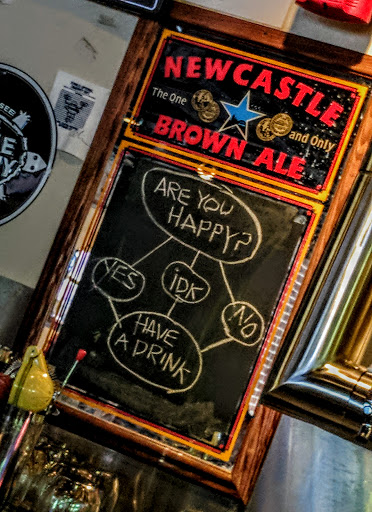 NEWCASTLE
The One and Only
BROWN ALE
ARE YOU
HAPPY?
YES
iDK
NO
HAVE
A DRINK